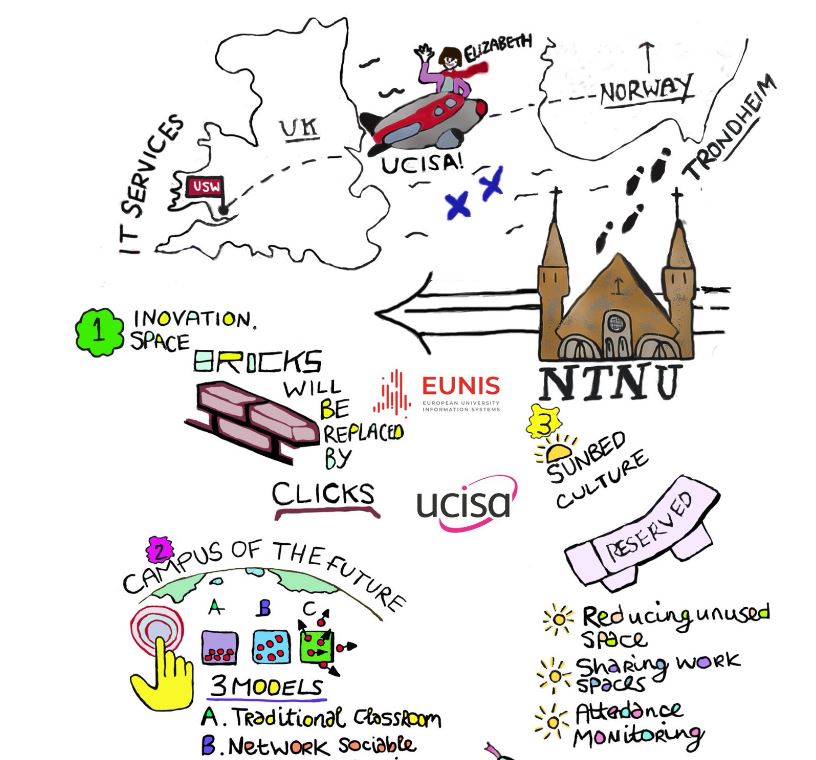 ELIZABETH
NORWAY
TRONDHEIM
UK
UCISA!
IT SERVICES
USW
1
INOVATION.
SPACE
BRICKS
WILL
BE
REPLACED
BY
CLICKS
EUNIS
EUROPEAN UNIVERSITY
INFORMATION SYSTEMS
ucisa
NTNU
3
SUNBED
CULTURE
RESERVED
Reducing unused
space
Sharing work
spaces
Attendance
Monitoring
2
CAMPUS OF THE FUTURE
A B C
3 MODELS
A. Traditional Classroom
B. Network Sociable